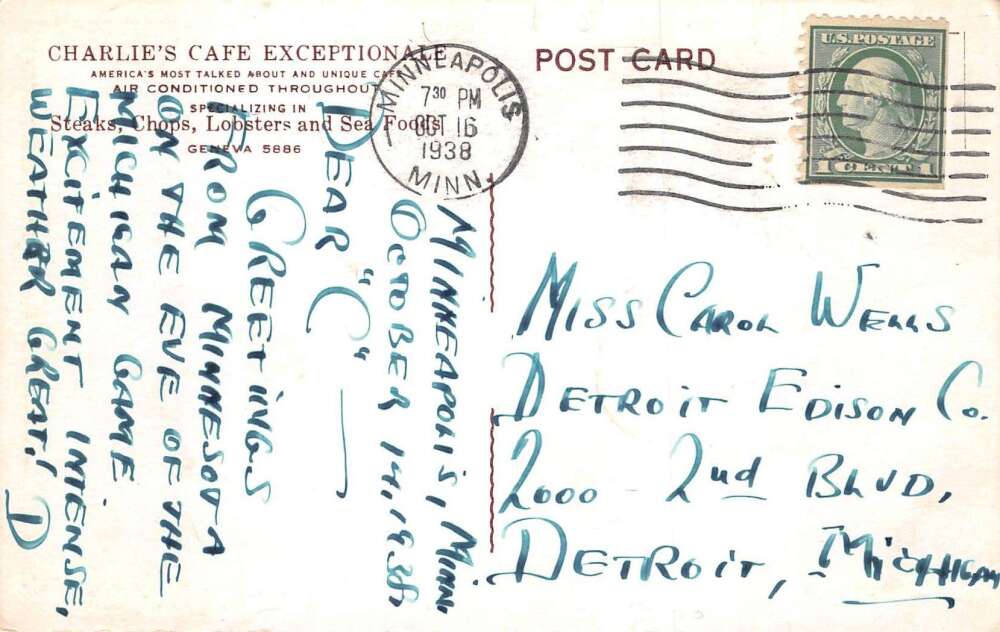 CHARLIE'S CAFE EXCEPTIONALE
AMERICA'S MOST TALKED ABOUT AND UNIQUE CAFE
AIR CONDITIONED THROUGHOUT
SPECIALIZING IN
Steaks, Chops, Lobsters and Sea Foods
GENEVA 5886
MINNEAPOLIS
7 30 PM
OCT 16
1938
MINN.
POST CARD
U.S. POSTAGE
1 CENT 1
MINNEAPOLIS, MINN.
OCTOBER 14, 1938.
DEAR "C" —
GREETINGS
FROM MINNESOTA
ON THE EVE OF THE
MICHIGAN GAME
EXCITEMENT INTENSE,
WEATHER GREAT! D
MISS CAROL WELLS
DETROIT EDISON CO.
2000 - 2nd BLVD,
DETROIT, MICHIGAN